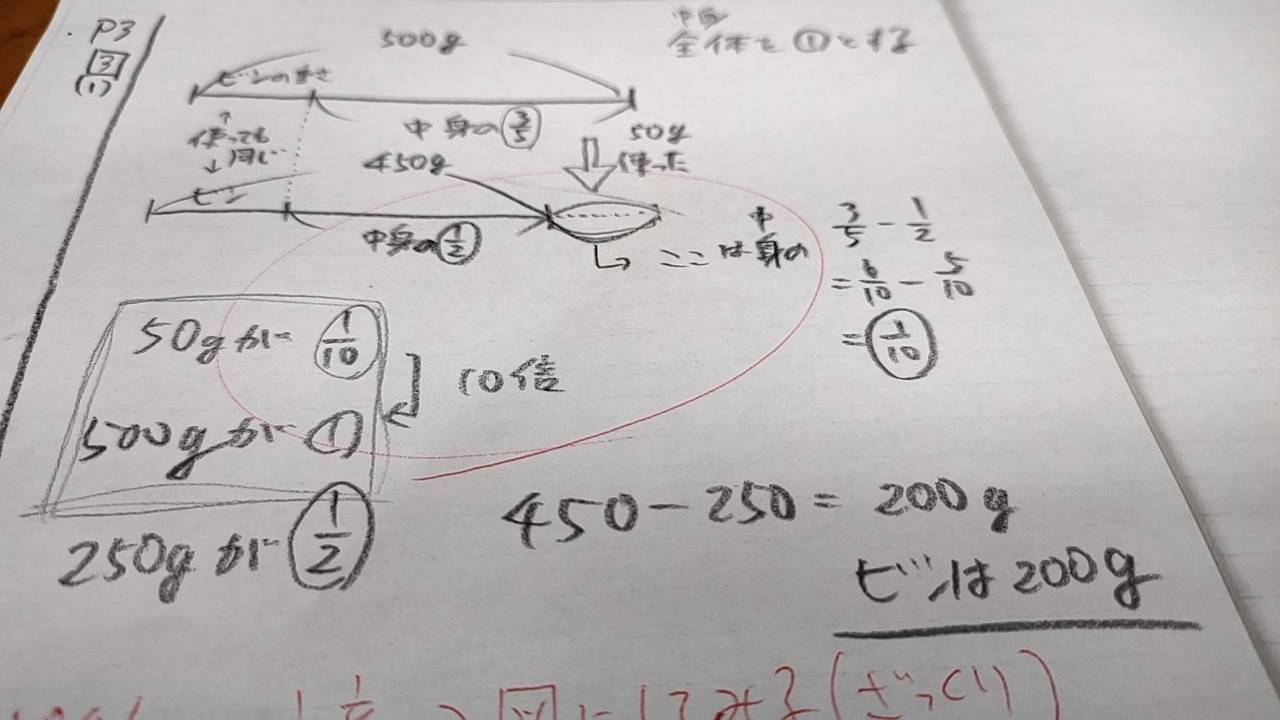 P3
3
(1)
中身
全体を①とする
500g
ビンの重さ
中身の3/5
50g
使った
↑
使っても
同じ
↓
450g
ビン
中身の1/2
ここは
中身の
3/5 - 1/2
= 6/10 - 5/10
= 1/10
50gが 1/10
10倍
500gが ①
250gが 1/2
450-250= 200g
ビンは200g